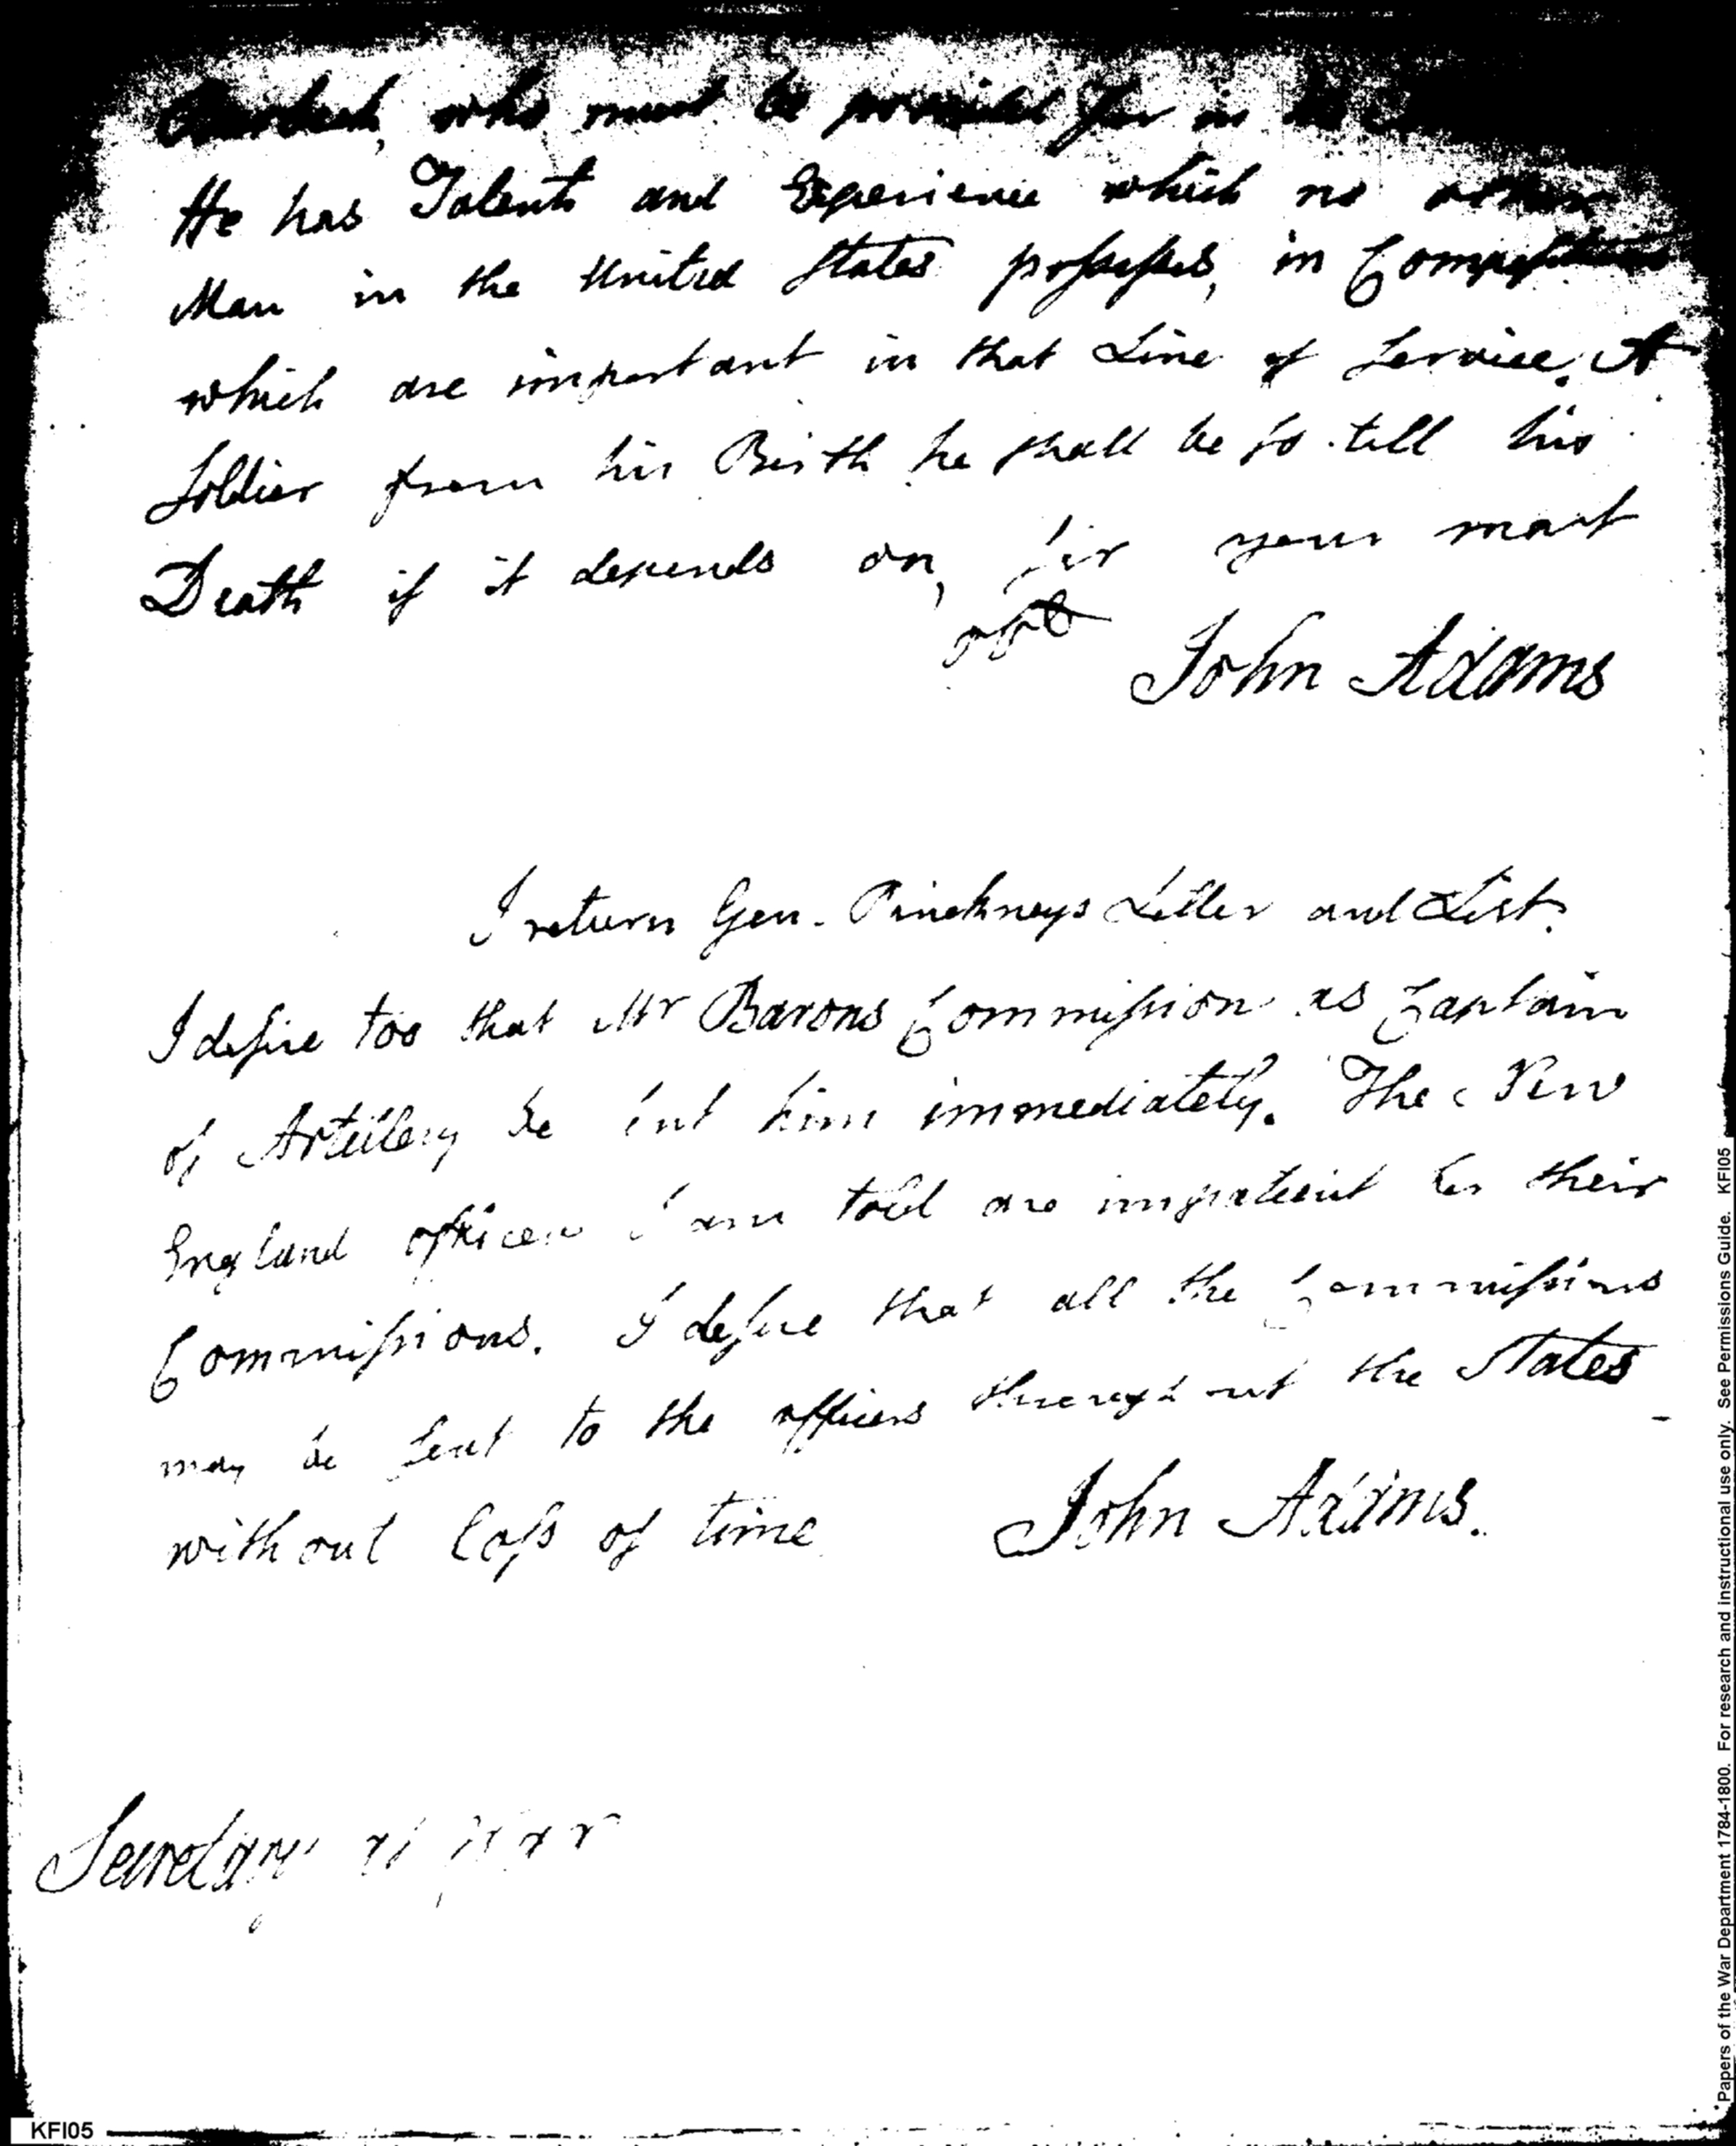 who must be provided for in
He has Talents and Experience which no other
Man in the United States possesses, in Competition
which are important in that Line of Service. A
Soldier from his Birth he shall be so till his
Death if it depends on, Sir your most
obt
John Adams
I return Gen. Pinckneys Letter and List.
I desire too that Mr Barons Commission as Captain
of Artillery be sent him immediately. The New
England officers I am told are impatient for their
Commissions. I desire that all the Commissions
may be sent to the officers throughout the States
without loss of time
John Adams.
Secretary at War
KFI05
Papers of the War Department 1784-1800. For research and instructional use only. See Permissions Guide. KFI05